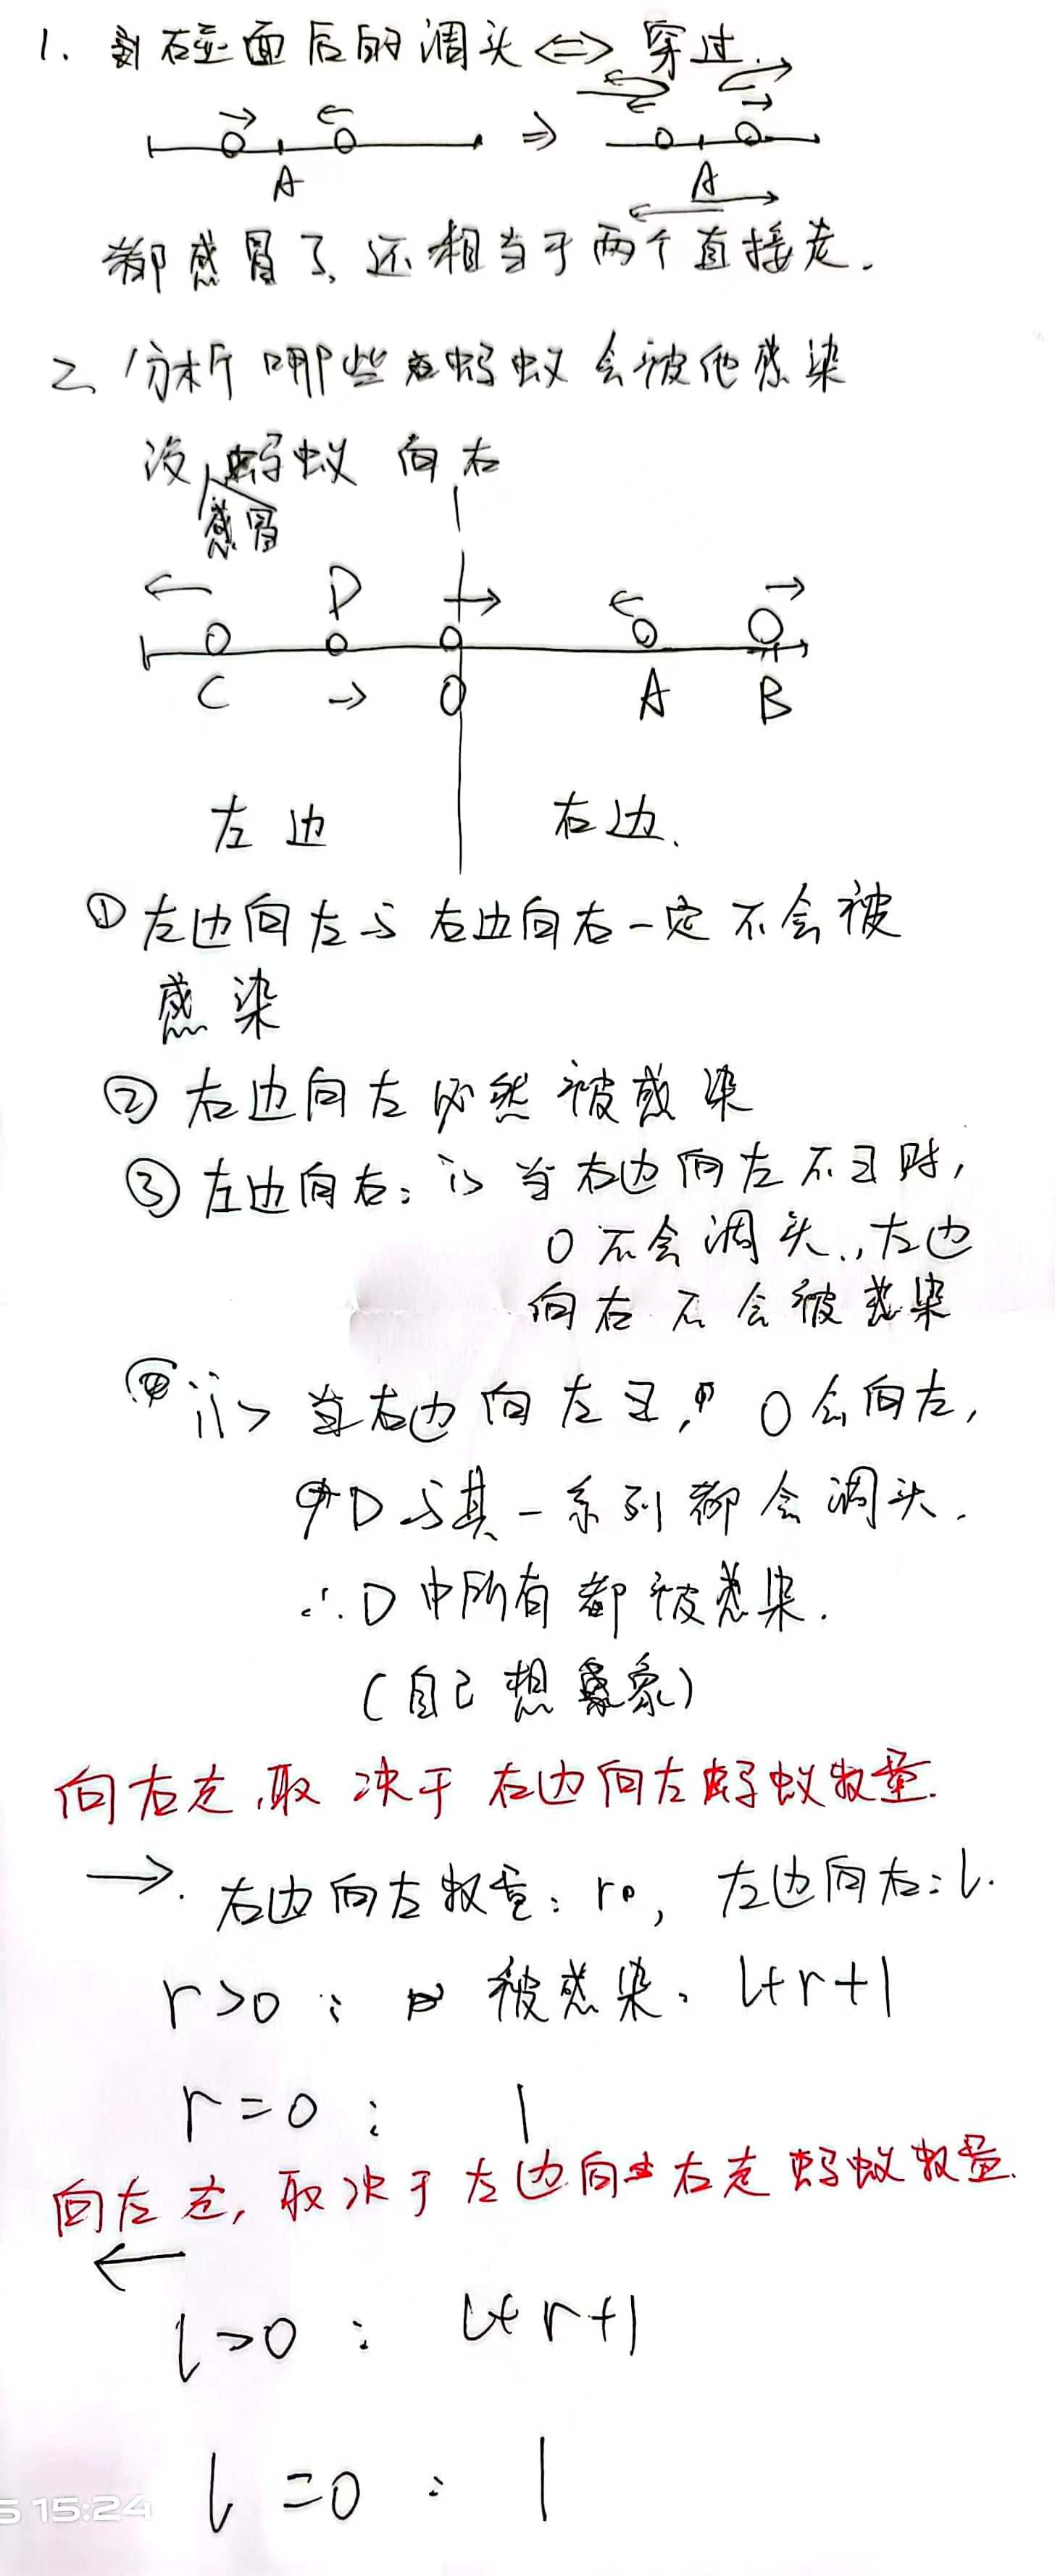 1. 碰面后的调头⇔穿过.
A ⇒ A
都感冒了,还相当于两个直接走.
2、分析哪些蚂蚁会被他感染
设感冒蚂蚁向右
D
C → O A B
左边 右边.
① 左边向左与右边向右一定不会被
感染
② 右边向左必然被感染
③ 左边向右: i> 当右边向左不∃时,
O不会调头.,左边
向右不会被感染
ii> 当右边向左∃, O会向左,
D与其一系列都会调头.
∴D中所有都被感染.
(自己想象)
向右走,取决于右边向左蚂蚁数量.
→. 右边向左数量: r, 左边向右: l.
r>0 : 被感染、l+r+1
r=0 : 1
向左走,取决于左边向右走蚂蚁数量.
←
l>0 : l+r+1
l=0 : 1
5 15:24